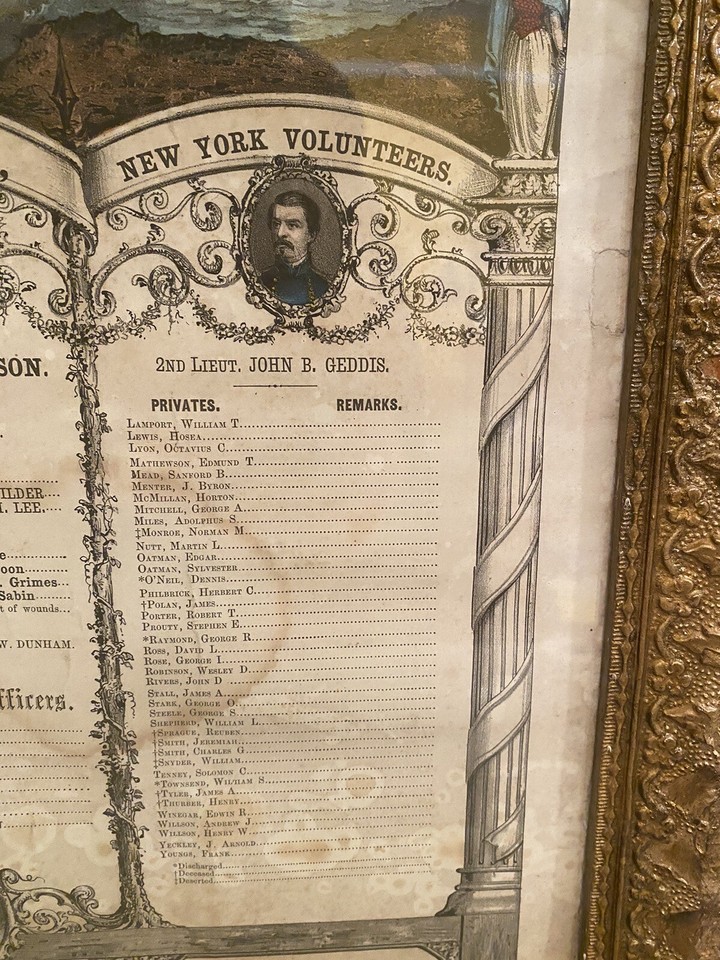 NEW YORK VOLUNTEERS.
SON.
ILDER
I. LEE.
e
oon
. Grimes
Sabin
t of wounds
W. DUNHAM.
fficers.
2ND LIEUT. JOHN B. GEDDIS.
PRIVATES. REMARKS.
LAMPORT, WILLIAM T.
LEWIS, HOSEA
LYON, OCTAVIUS C.
MATHEWSON, EDMUND T.
MEAD, SANFORD B.
MENTER, J. BYRON
MCMILLAN, HORTON
MITCHELL, GEORGE A.
MILES, ADOLPHUS S.
‡MONROE, NORMAN M.
NUTT, MARTIN L.
OATMAN, EDGAR
OATMAN, SYLVESTER
*O'NEIL, DENNIS
PHILBRICK, HERBERT C.
†POLAN, JAMES
PORTER, ROBERT T.
PROUTY, STEPHEN E.
*RAYMOND, GEORGE R.
ROSS, DAVID L.
ROSE, GEORGE I.
ROBINSON, WESLEY D.
RIVERS, JOHN D
STALL, JAMES A.
STARK, GEORGE O.
STEELE, GEORGE S.
SHEPHERD, WILLIAM L.
†SPRAGUE, REUBEN
†SMITH, JEREMIAH
†SMITH, CHARLES G
‡SNYDER, WILLIAM
TENNEY, SOLOMON C.
*TOWNSEND, WILLIAM S.
†TYLER, JAMES A.
†THURBER, HENRY
WINEGAR, EDWIN R.
WILLSON, ANDREW J.
WILLSON, HENRY W.
YECKLEY, J. ARNOLD
YOUNGS, FRANK
*Discharged
†Deceased
‡Deserted